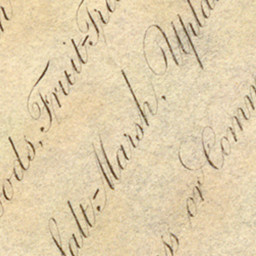 ods, Fruit-Tre
alt-Marsh, Upla
ss or Comm